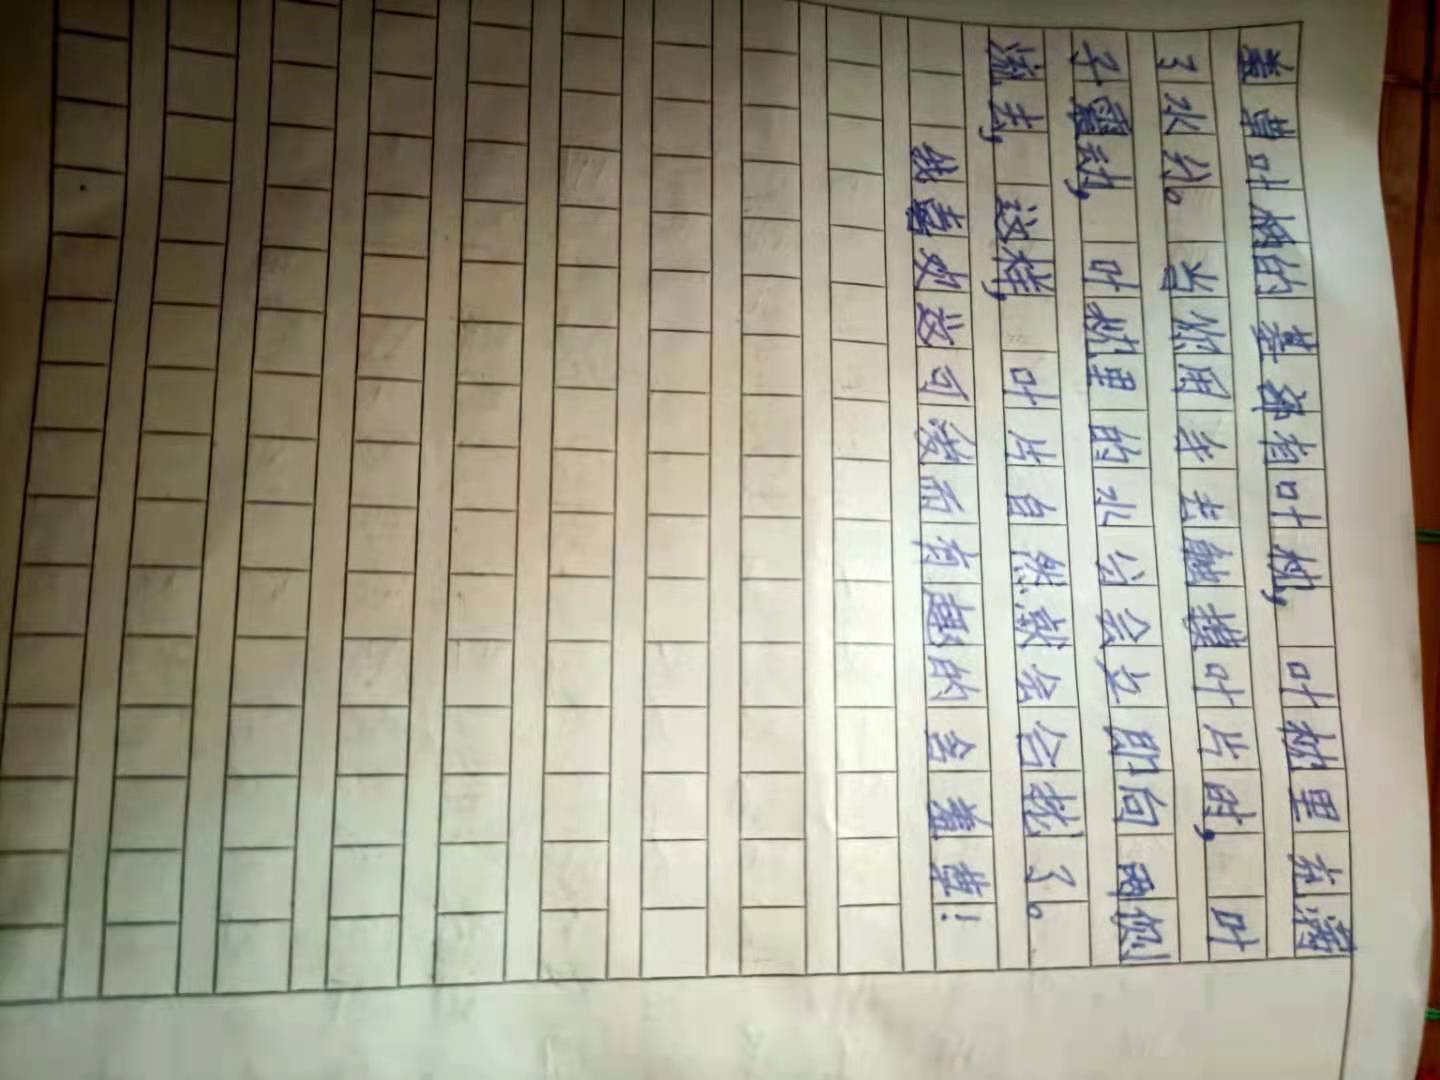 羞草叶柄的基部有叶枕，叶枕里充满
了水分。当你用手去触摸叶片时，叶
子震动，叶枕里的水分会立即向两侧
流去，这样，叶片自然就会合拢了。
我喜欢这可爱而有趣的含羞草！